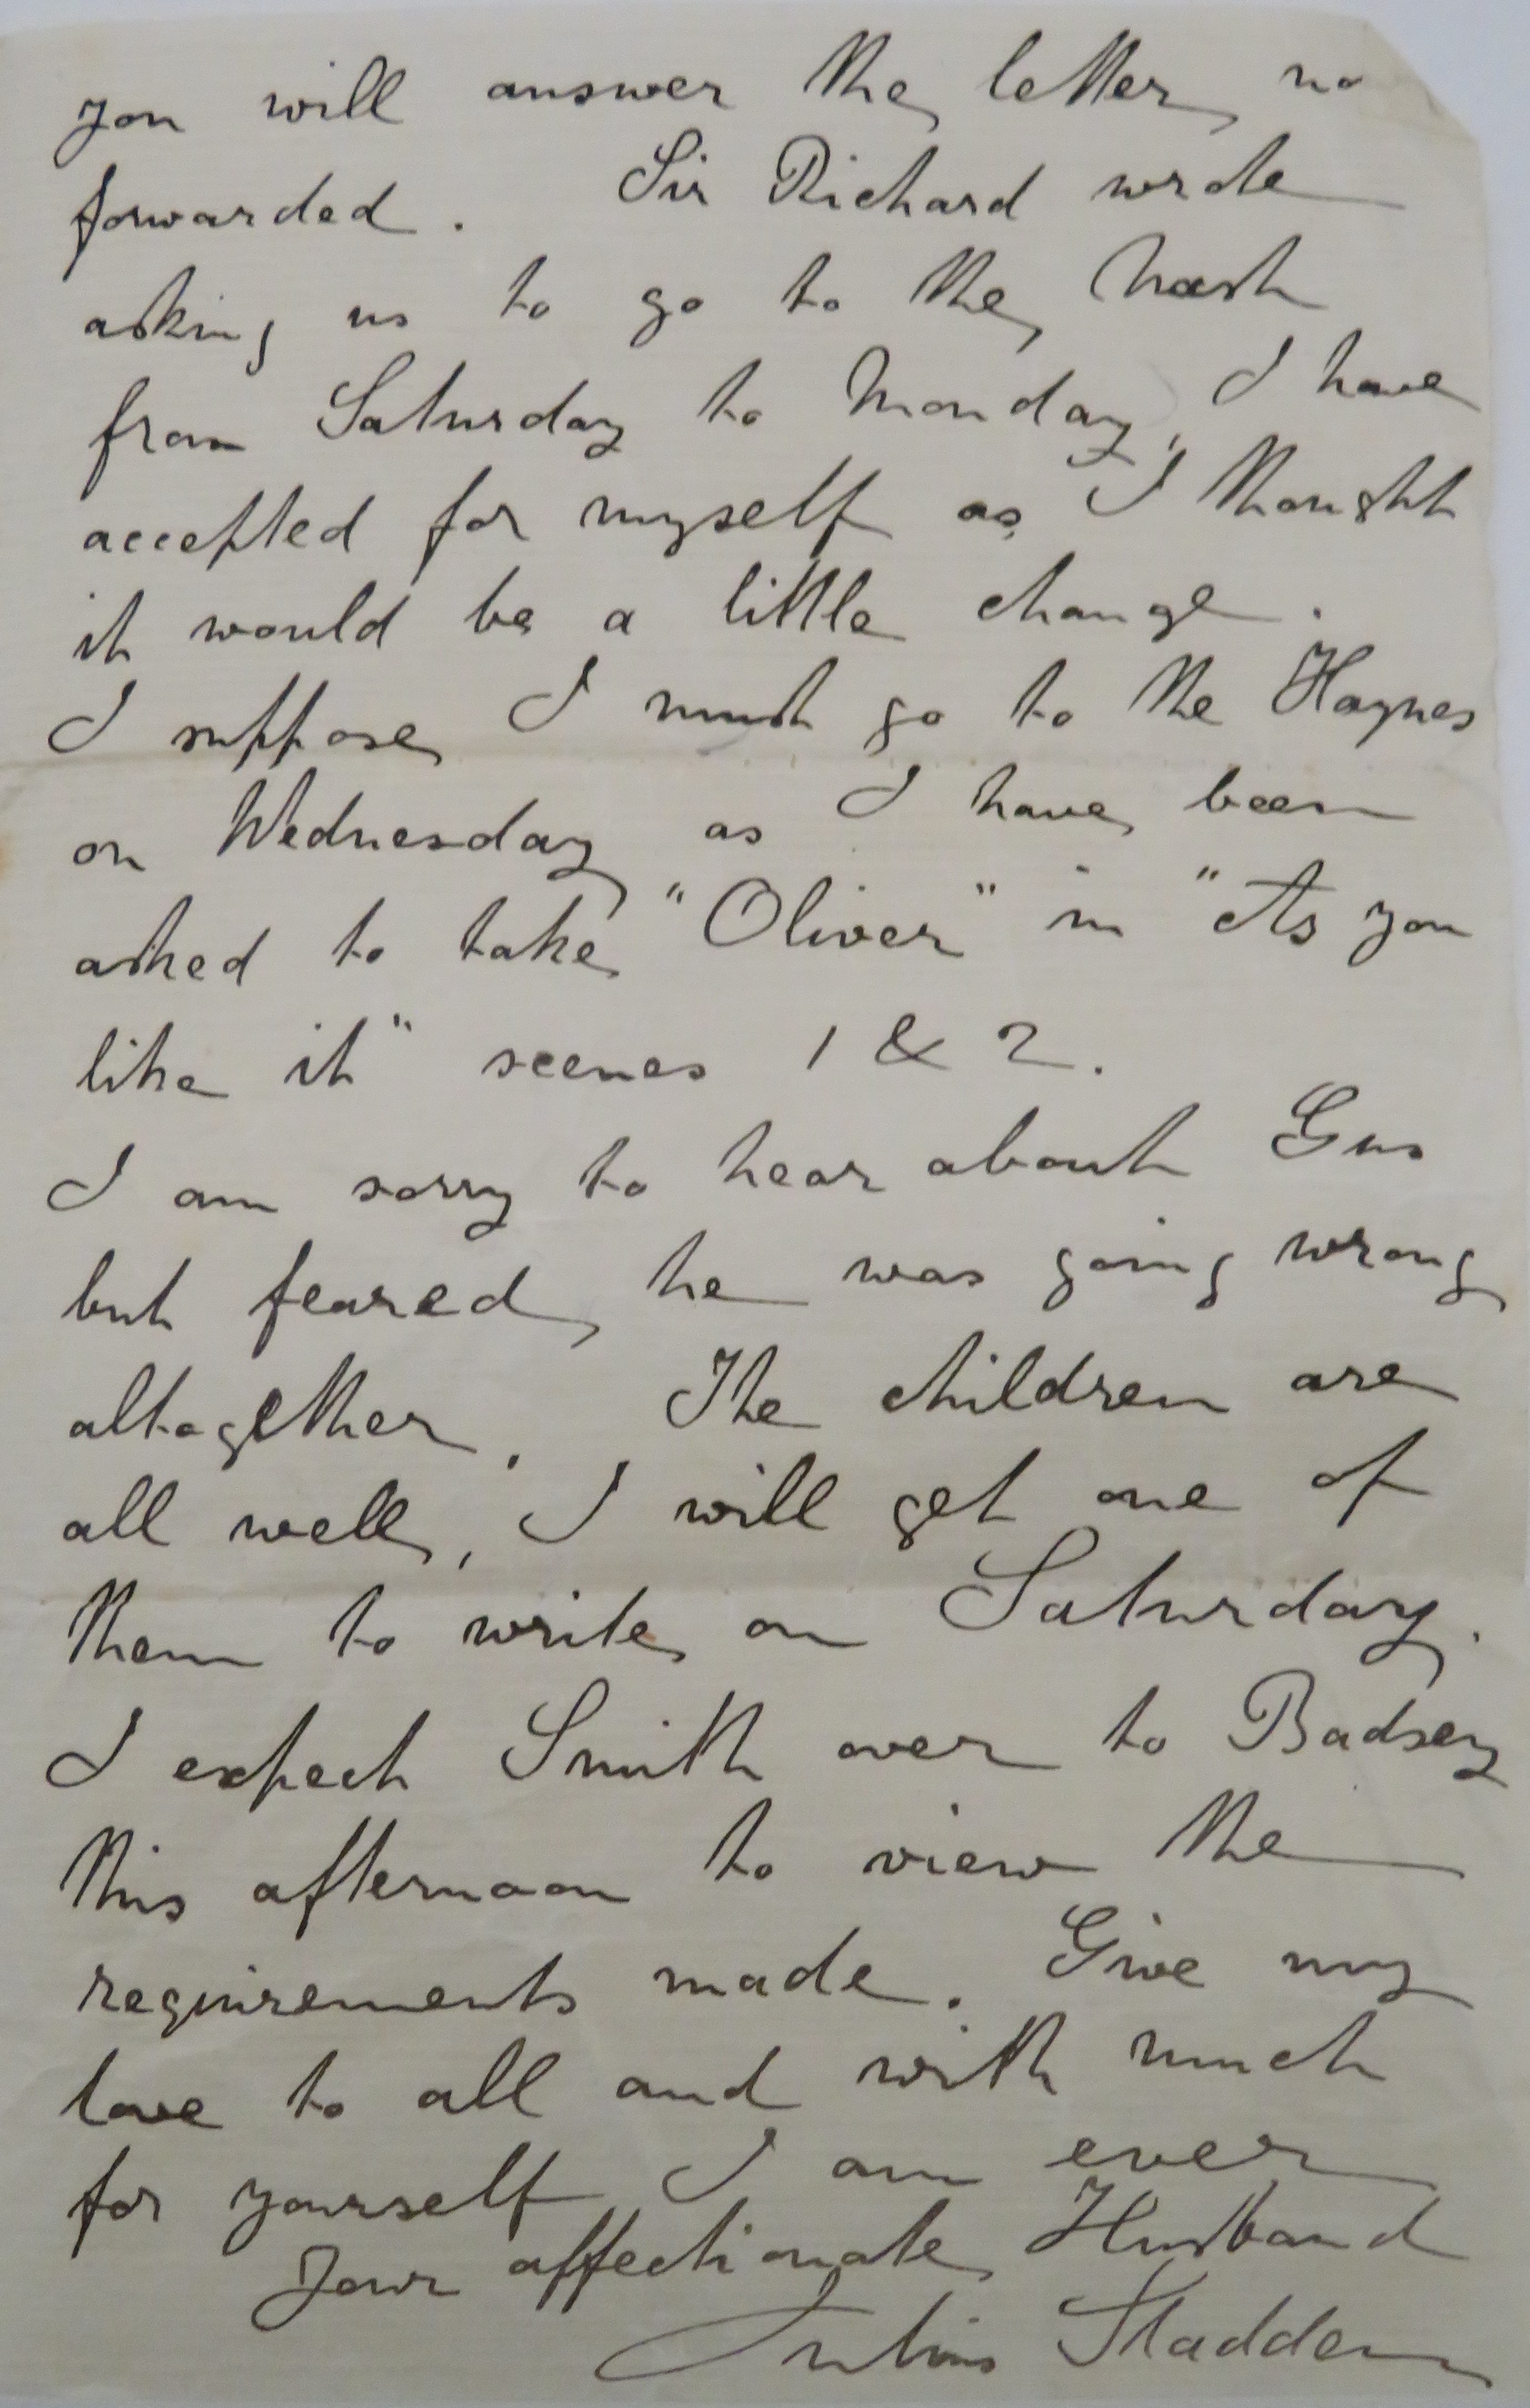 you will answer the letter, no
forwarded. Sir Richard wrote
asking us to go to the Nash
from Saturday to Monday, I have
accepted for myself as I thought
it would be a little change.
I suppose I must go to the Haynes
on Wednesday as I have been
asked to take "Oliver" in "As you
like it" scenes 1 & 2.
I am sorry to hear about Gus
but feared he was going wrong
altogether. The children are
all well, I will get one of
them to write on Saturday.
I expect Smith over to Badsey
this afternoon to view the
requirements made. Give my
love to all and with much
for yourself I am ever
Your affectionate Husband
Julius Sladden